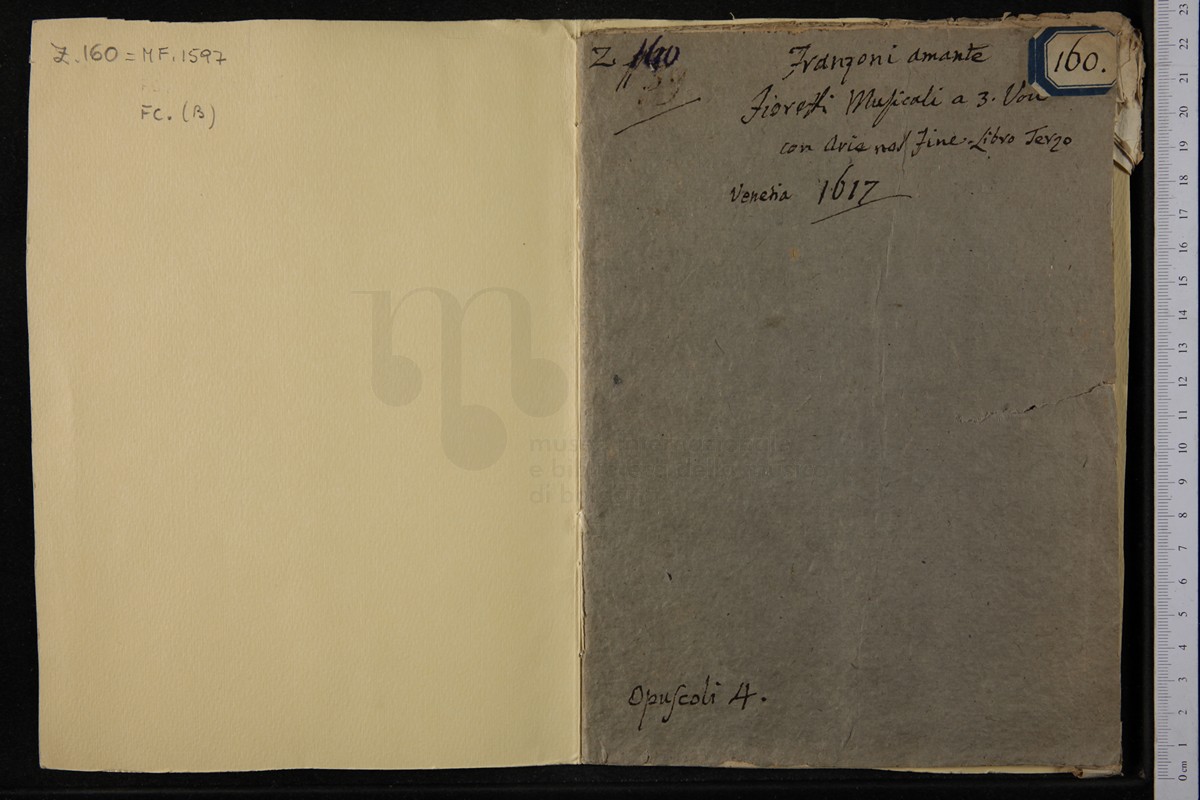 Z.160 = MF.1597
FC. (B)
Z 160
160.
Franzoni amante
Fioretti Musicali a 3. Voci
con Arie nel Fine. Libro Terzo
Venetia 1617
Opuscoli 4.
museo
di bologna
23
22
21
20
19
18
17
16
15
14
13
12
11
10
9
8
7
6
5
4
3
2
1
0 cm